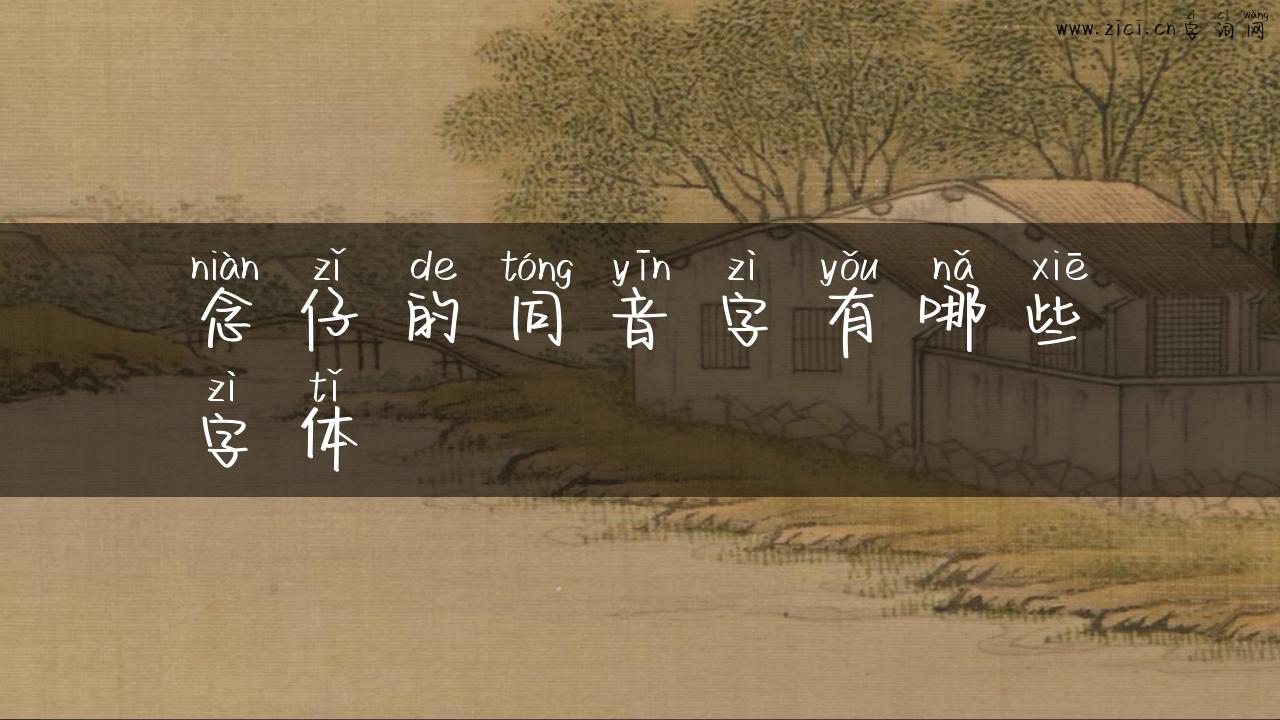 zì cí wǎng
www.zici.cn字词网
niàn zǐ de tóng yīn zì yǒu nǎ xiē
念仔的同音字有哪些
zì tǐ
字体